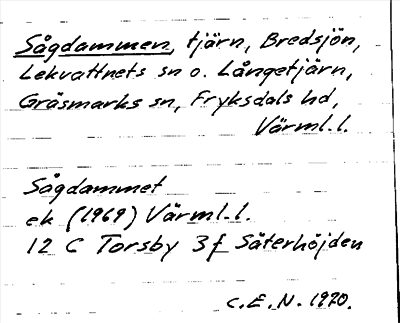 Sågdammen, tjärn, Bredsjön,
Lekvattnets sn o. Långetjärn,
Gräsmarks sn, Fryksdals hd,
Värml.l.
Sågdammet
ek (1969) Värml.l.
12 C Torsby 3f Säterhöjden
C.E.N. 1970.